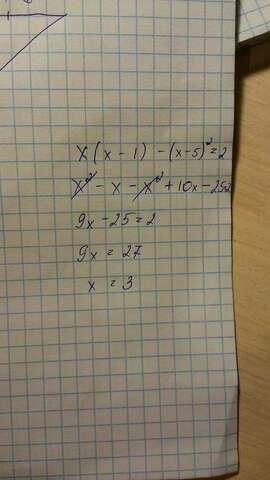 x(x-1)-(x-5)²=2
x²-x-x²+10x-25=2
9x-25=2
9x=27
x=3